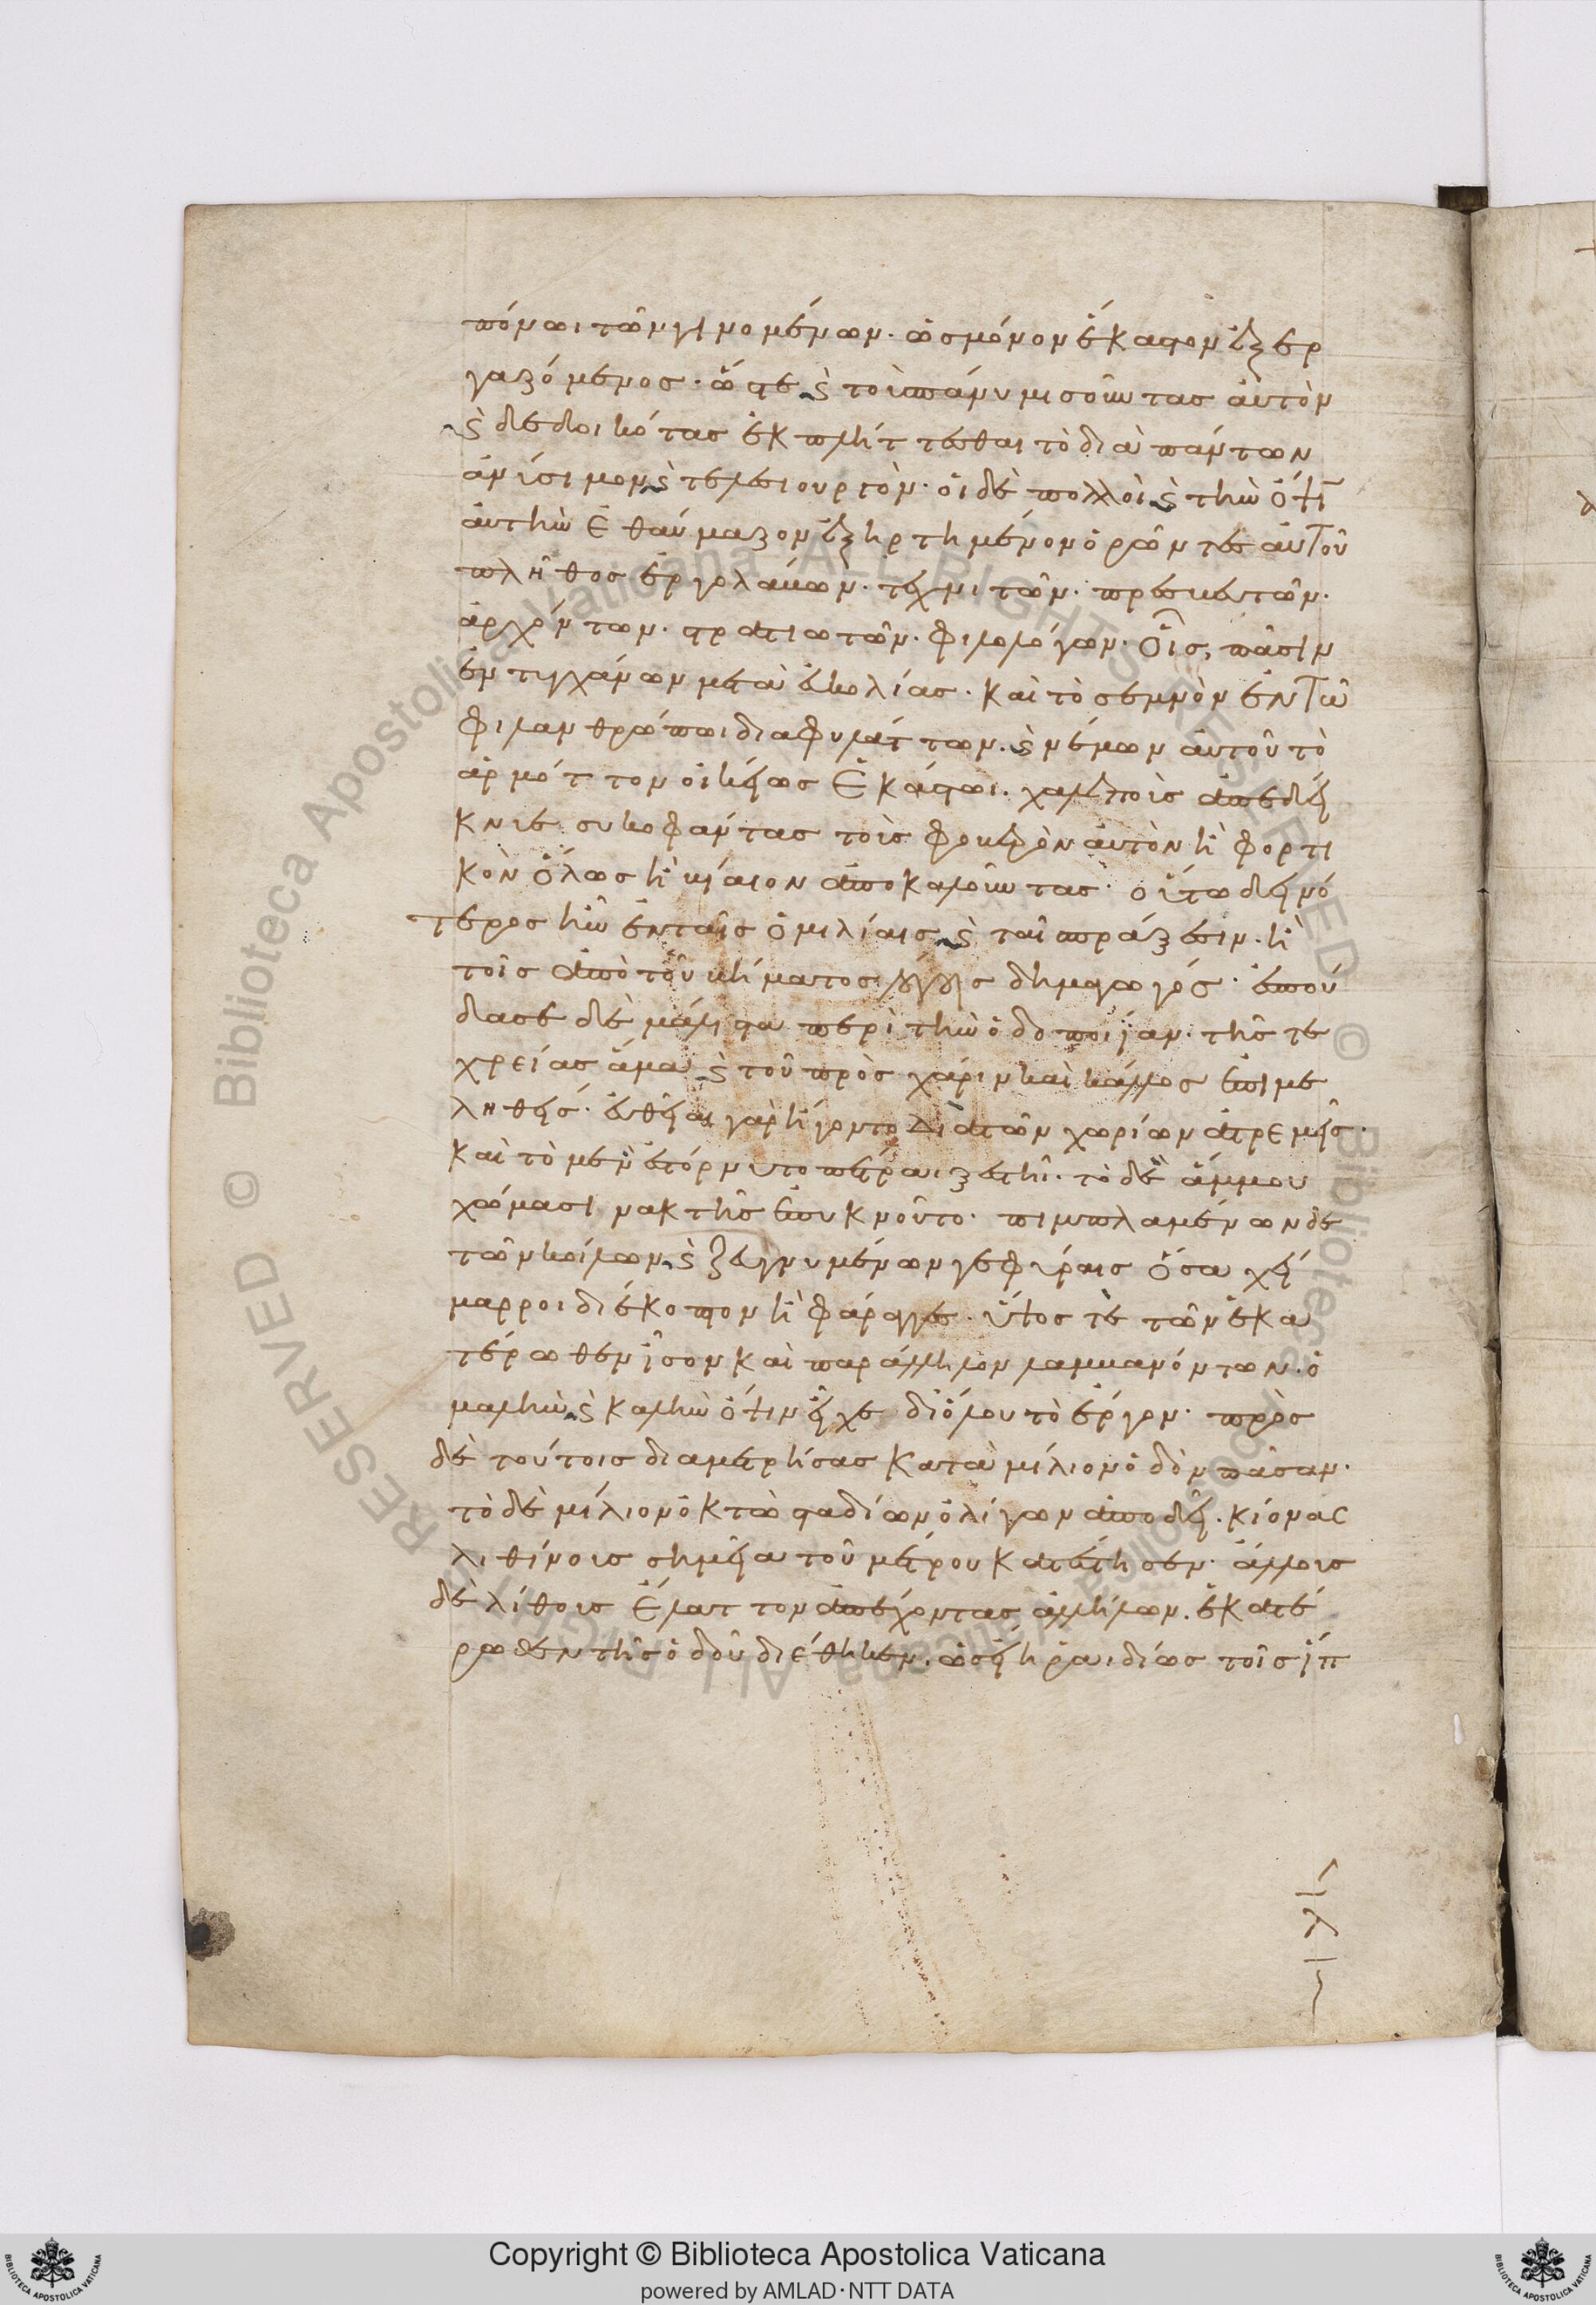 πόνωι τῶν γινομένων· ὡς μόνον ἕκαστον ἐξερ
γαζόμενος· ὥστε ϗ τοὺς πάνυ μισοῦντας αὐτὸν
ϗ δεδοικότας ἐκπλήττεσθαι τὸ διὰ πάντων
ἀνύσιμον ϗ τελεσιουργόν· οἱ δὲ πολλοὶ ϗ τὴν ὄψιν
αὐτὴν ἐθαύμαζον ἐξηρτημένον ὁρῶντες αὐτοῦ
πλῆθος ἐργολάβων· τεχνιτῶν· πρεσβευτῶν·
ἀρχόντων· στρατιωτῶν· φιλολόγων· οἷς πᾶσιν
ἐντυγχάνων μετὰ εὐκολίας· καὶ τὸ σεμνὸν ἐν τῶ
φιλανθρώπωι διαφυλάττων· ϗ νέμων αὐτοῦ τὸ
ἁρμόττον οἰκείως ἑκάστωι· χαλεποὺς ἀπεδεί
κνυε συκοφάντας τοὺς φοβερὸν αὐτὸν ἢ φορτι
κὸν ὅλως ἢ βίαιον ἀποκαλοῦντας· οὕτω δεινό
τερος ἦν ἐν ταῖς ὁμιλίαις ϗ ταῖς πράξεσιν· ἢ
τοῖς ἀπὸ τοῦ βήματος λόγοις δημαγωγός· ἐσπού
δασε δὲ μάλιστα περὶ τὴν ὁδοποιίαν· τῆς τε
χρείας ἅμα ϗ τοῦ πρὸς χάριν καὶ κάλλος ἐπιμε
ληθείς· εὐθεῖαι γὰρ ἤγοντο διὰ τῶν χωρίων ἀτρεμεῖς·
καὶ τὸ μὲν ἐστόρνυτο πέτραι ξεστῆι· τὸ δὲ ἄμμου
χώμασι νακτῆς ἐπυκνοῦτο· πιμπλαμένων δὲ
τῶν κοίλων ϗ ζευγνυμένων γεφύραις ὅσα χεί
μαρροι διέκοπτον ἢ φάραγγες· ὕψος τε τῶν ἑκα
τέρωθεν ἴσον καὶ παράλληλον λαμβανόντων· ὁ
μαλὴν ϗ καλὴν ὄψιν εἶχε δι᾽ ὅλου τὸ ἔργον· πρὸς
δὲ τούτοις διαμετρήσας κατὰ μίλιον ὁδὸν πᾶσαν·
τὸ δὲ μίλιον ὀκτὼ σταδίων ὀλίγων ἀποδεῖ· κίονας
λιθίνους σημεῖα τοῦ μέτρου κατέστησεν· ἄλλους
δὲ λίθους ἔλαττον ἀπέχοντας ἀλλήλων· ἑκατέ
ρωθεν τῆς ὁδοῦ διέθηκεν· ὡς εἴη ῥαιδίως τοῖς ἵπ
Copyright © Biblioteca Apostolica Vaticana
powered by AMLAD·NTT DATA